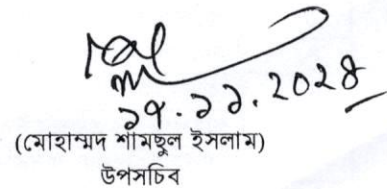 ১৭.১১.২০২৪
(মোহাম্মদ শামছুল ইসলাম)
উপসচিব